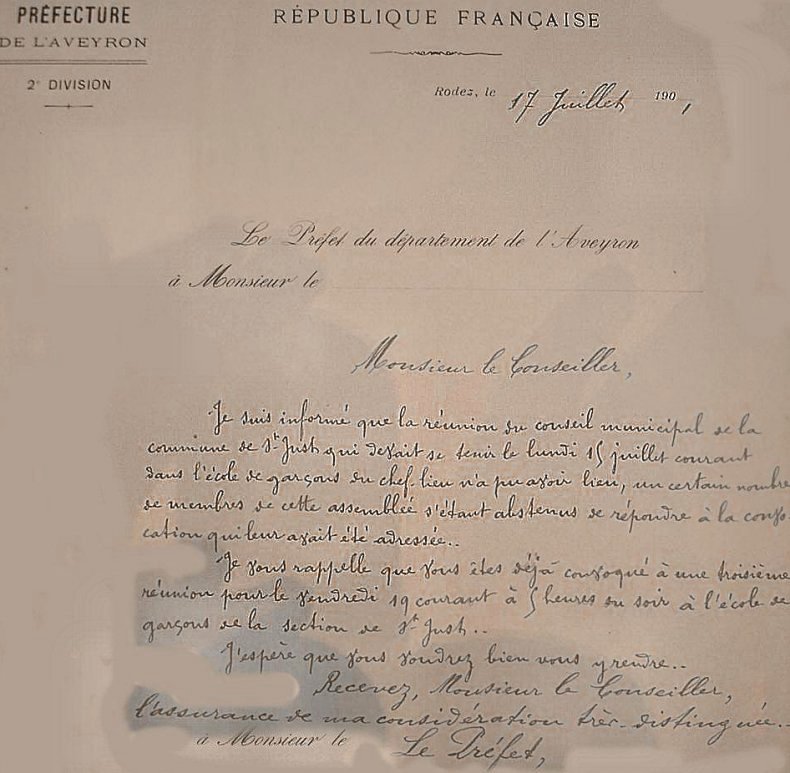 PRÉFECTURE
DE L'AVEYRON
2e DIVISION
RÉPUBLIQUE FRANÇAISE
Rodez, le 17 Juillet 1901
Le Préfet du département de l'Aveyron
à Monsieur le
Monsieur le Conseiller,
Je suis informé que la réunion du conseil municipal de la
commune de St Just qui devait se tenir le lundi 15 juillet courant
dans l'école de garçons du chef-lieu n'a pu avoir lieu, un certain nombre
de membres de cette assemblée s'étant abstenus de répondre à la convo-
cation qui leur avait été adressée..
Je vous rappelle que vous êtes déjà convoqué à une troisième
réunion pour le vendredi 19 courant à 5 heures du soir à l'école de
garçons de la section de St Just..
J'espère que vous voudrez bien vous y rendre..
Recevez, Monsieur le Conseiller,
l'assurance de ma considération très-distinguée..
à Monsieur le Le Préfet,